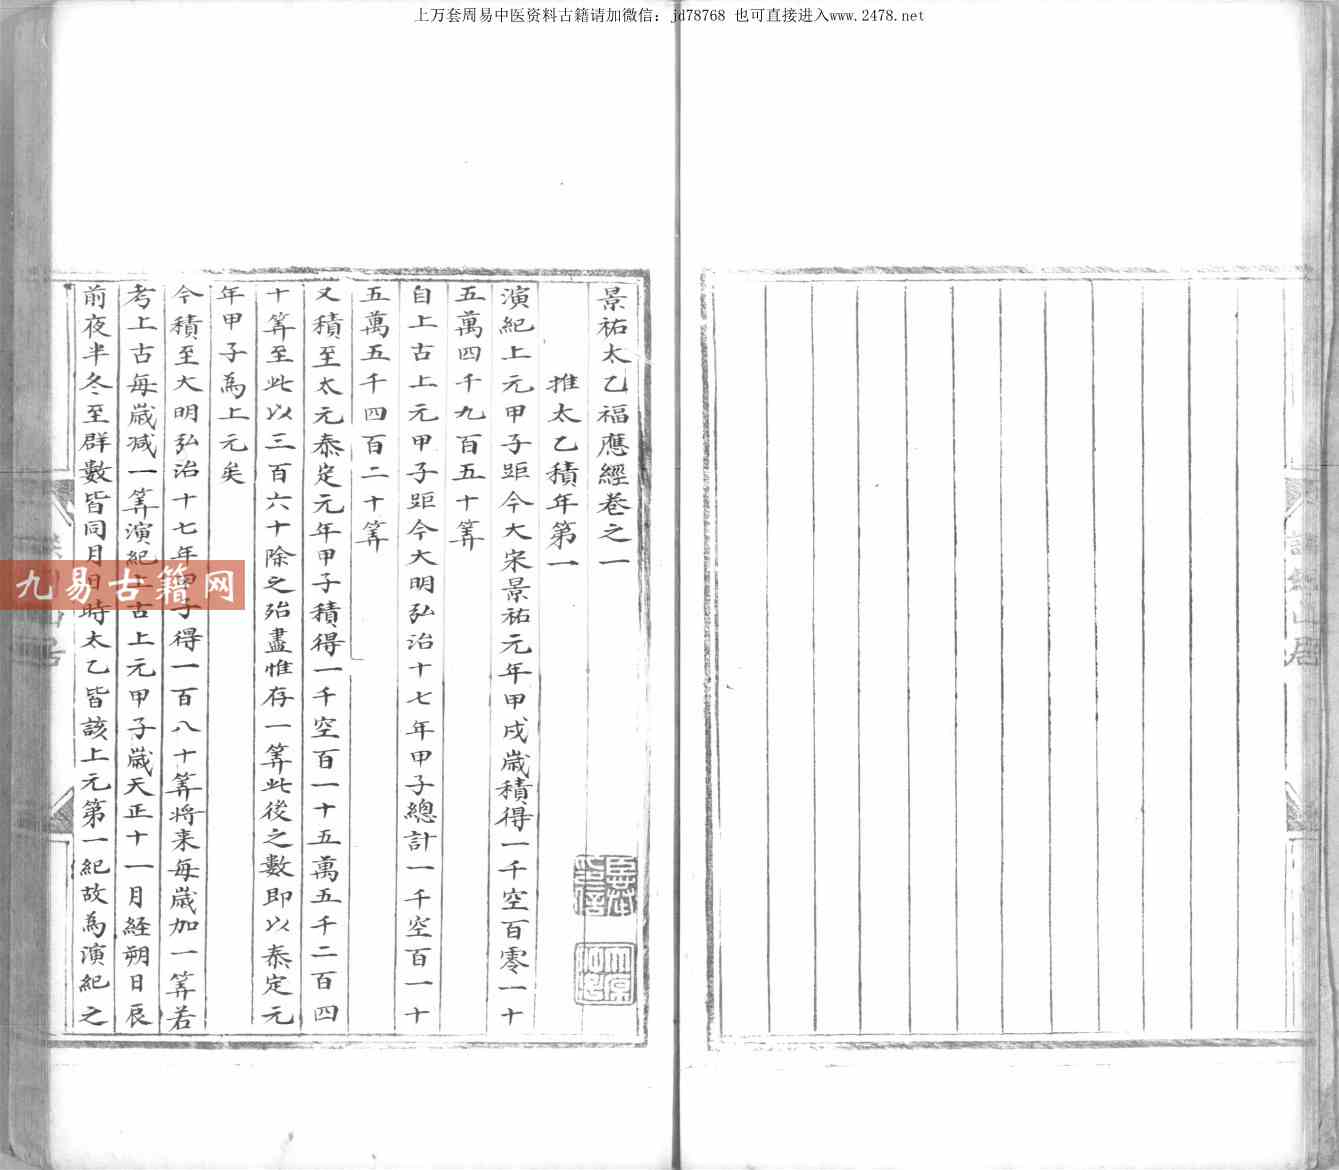 上万套周易中医资料古籍请加微信：jd78768 也可直接进入www.2478.net
景祐太乙福應經卷之一
推太乙積年第一
演紀上元甲子距今大宋景祐元年甲戌歲積得一千空百零一十
五萬四千九百五十筭
自上古上元甲子距今大明弘治十七年甲子總計一千空百一十
五萬五千四百二十筭
又積至太元泰定元年甲子積得一千空百一十五萬五千二百四
十筭至此以三百六十除之殆盡惟存一筭此後之數即以泰定元
年甲子為上元矣
今積至大明弘治十七年甲子得一百八十筭將来每歲加一筭若
考上古每歲減一筭演紀上古上元甲子歲天正十一月經朔日辰
前夜半冬至群數皆同月日時太乙皆該上元第一紀故為演紀之
九易古籍网